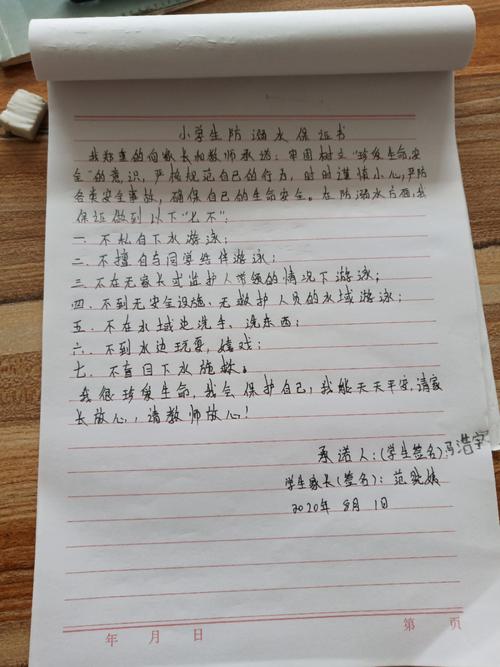 小学生防溺水保证书
我郑重的向家长和教师承诺：牢固树立“珍爱生命，安
全”的意识，严格规范自己的行为，时时谨慎小心，严防
各类安全事故，确保自己的生命安全。在防溺水方面，我
保证做到以下“七不”：
一. 不私自下水游泳；
二. 不擅自与同学结伴游泳；
三. 不在无家长或监护人带领的情况下游泳；
四. 不到无安全设施、无救护人员的水域游泳；
五. 不在水域边洗手、洗东西；
六. 不到水边玩耍，嬉戏；
七. 不盲目下水施救。
我很珍爱生命，我会保护自己；我能天天平安，请家
长放心，请教师放心！
承诺人：（学生签名）冯浩宇
学生家长（签名）：范
2020年 8月 1日
年 月 日 第 页